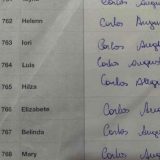 Carlos August
762 Helenn Carlos Augu
763 Iori Carlos Augu
764 Luis Carlos August
765 Hilza Carlos Augu
766 Elizabete Carlos Augu
767 Belinda Carlos Augu
768 Mary Carlos Augu